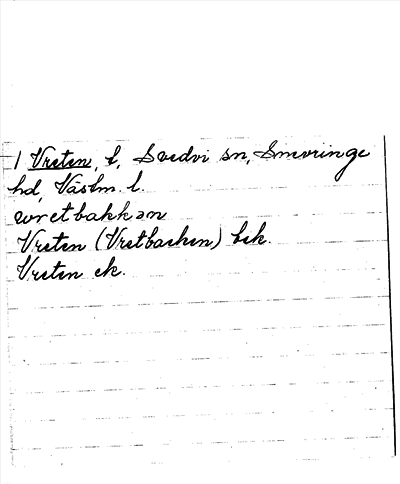 1 Vreten, t, Svedvi sn, Snevringe
hd, Västm. l.
wretbakkən
Vreten (Vretbacken) bek.
Vreten ek.